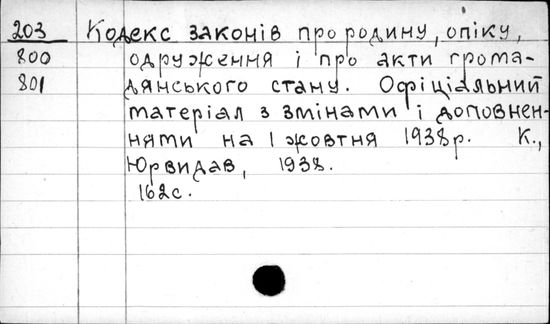 203 Кодекс законів про родину, опіку,
800 одруження і про акти грома-
801 дянського стану. Офіціальний
матеріал з змінами і доповнен-
нями на 1 жовтня 1938 р. К.,
Юрвидав, 1938.
162 с.